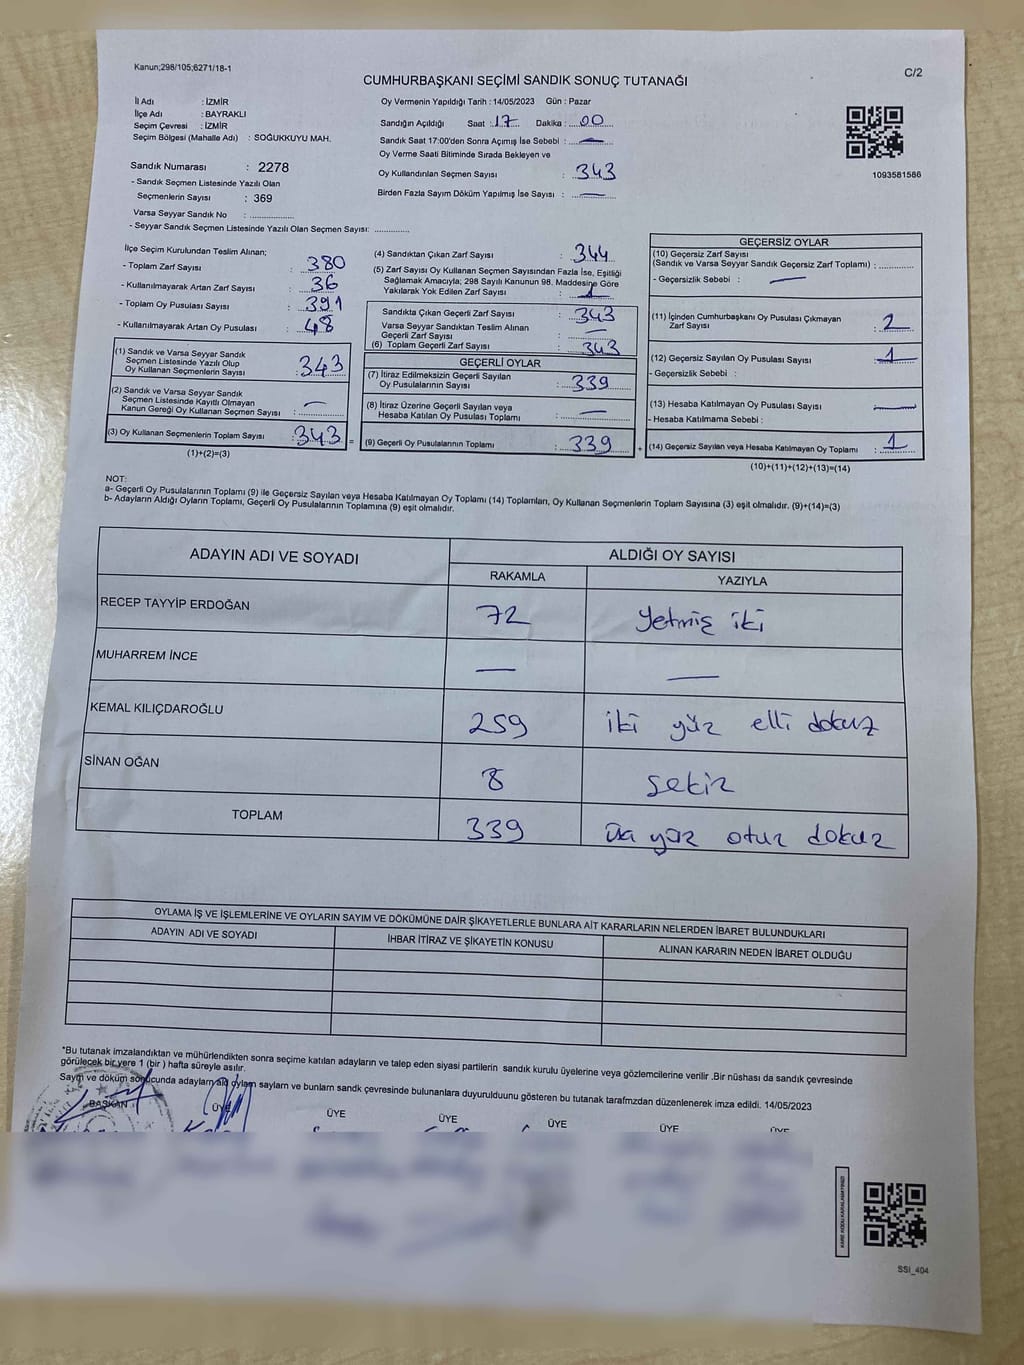 Kanun;298/105;6271/18-1
C/2
CUMHURBAŞKANI SEÇİMİ SANDIK SONUÇ TUTANAĞI
İl Adı : İZMİR
İlçe Adı : BAYRAKLI
Seçim Çevresi : İZMİR
Seçim Bölgesi (Mahalle Adı) : SOĞUKKUYU MAH.
Sandık Numarası : 2278
- Sandık Seçmen Listesinde Yazılı Olan
Seçmenlerin Sayısı : 369
Varsa Seyyar Sandık No : ..............
- Seyyar Sandık Seçmen Listesinde Yazılı Olan Seçmen Sayısı: ............
Oy Vermenin Yapıldığı Tarih : 14/05/2023 Gün : Pazar
Sandığın Açıldığı Saat : 17 Dakika : 00
Sandık Saat 17:00'den Sonra Açımış İse Sebebi : —
Oy Verme Saati Bitiminde Sırada Bekleyen ve
Oy Kullandırılan Seçmen Sayısı : 343
Birden Fazla Sayım Döküm Yapılmış İse Sayısı : —
1093581586
İlçe Seçim Kurulundan Teslim Alınan;
- Toplam Zarf Sayısı : 380
- Kullanılmayarak Artan Zarf Sayısı : 36
- Toplam Oy Pusulası : 391
- Kullanılmayarak Artan Oy Pusulası : 48
(1) Sandık ve Varsa Seyyar Sandık
Seçmen Listesinde Yazılı Olup
Oy Kullanan Seçmenlerin Sayısı : 343
(2) Sandık ve Varsa Seyyar Sandık
Seçmen Listesinde Kayıtlı Olmayan
Kanun Gereği Oy Kullanan Seçmen Sayısı : —
(3) Oy Kullanan Seçmenlerin Toplam Sayısı : 343 =
(1)+(2)=(3)
(4) Sandıktan Çıkan Zarf Sayısı : 344
(5) Zarf Sayısı Oy Kullanan Seçmen Sayısından Fazla İse, Eşitliği
Sağlamak Amacıyla; 298 Sayılı Kanunun 98. Maddesine Göre
Yakılarak Yok Edilen Zarf Sayısı : 1
Sandıkta Çıkan Geçerli Zarf Sayısı : 343
Varsa Seyyar Sandıktan Teslim Alınan
Geçerli Zarf Sayısı : —
(6) Toplam Geçerli Zarf Sayısı : 343
GEÇERLİ OYLAR
(7) İtiraz Edilmeksizin Geçerli Sayılan
Oy Pusulalarının Sayısı : 339
(8) İtiraz Üzerine Geçerli Sayılan veya
Hesaba Katılan Oy Pusulası Toplamı : —
(9) Geçerli Oy Pusulalarının Toplamı : 339 +
GEÇERSİZ OYLAR
(10) Geçersiz Zarf Sayısı
(Sandık ve Varsa Seyyar Sandık Geçersiz Zarf Toplamı) : ............
- Geçersizlik Sebebi : —
(11) İçinden Cumhurbaşkanı Oy Pusulası Çıkmayan
Zarf Sayısı : 2
(12) Geçersiz Sayılan Oy Pusulası Sayısı : 1
- Geçersizlik Sebebi :
(13) Hesaba Katılmayan Oy Pusulası Sayısı : —
- Hesaba Katılmama Sebebi :
(14) Geçersiz Sayılan veya Hesaba Katılmayan Oy Toplamı : 1
(10)+(11)+(12)+(13)=(14)
NOT:
a- Geçerli Oy Pusulalarının Toplamı (9) ile Geçersiz Sayılan veya Hesaba Katılmayan Oy Toplamı (14) Toplamları, Oy Kullanan Seçmenlerin Toplam Sayısına (3) eşit olmalıdır. (9)+(14)=(3)
b- Adayların Aldığı Oyların Toplamı, Geçerli Oy Pusulalarının Toplamına (9) eşit olmalıdır.
ADAYIN ADI VE SOYADI ALDIĞI OY SAYISI
RAKAMLA YAZIYLA
RECEP TAYYİP ERDOĞAN 72 Yetmiş iki
MUHARREM İNCE — —
KEMAL KILIÇDAROĞLU 259 iki yüz elli dokuz
SİNAN OĞAN 8 sekiz
TOPLAM 339 üç yüz otuz dokuz
OYLAMA İŞ VE İŞLEMLERİNE VE OYLARIN SAYIM VE DÖKÜMÜNE DAİR ŞİKAYETLERLE BUNLARA AİT KARARLARIN NELERDEN İBARET BULUNDUKLARI
ADAYIN ADI VE SOYADI İHBAR İTİRAZ VE ŞİKAYETİN KONUSU ALINAN KARARIN NEDEN İBARET OLDUĞU
*Bu tutanak imzalandıktan ve mühürlendikten sonra seçime katılan adayların ve talep eden siyasi partilerin sandık kurulu üyelerine veya gözlemcilerine verilir .Bir nüshası da sandık çevresinde
görülecek bir yere 1 (bir ) hafta süreyle asılır.
Sayım ve döküm sonucunda adayların ald oyların saylam ve bunların sandk çevresinde bulunanlara duyurulduunu gösteren bu tutanak tarafmzdan düzenlenerek imza edildi. 14/05/2023
BAŞKAN ÜYE ÜYE ÜYE ÜYE ÜYE ÜYE
SSI_404